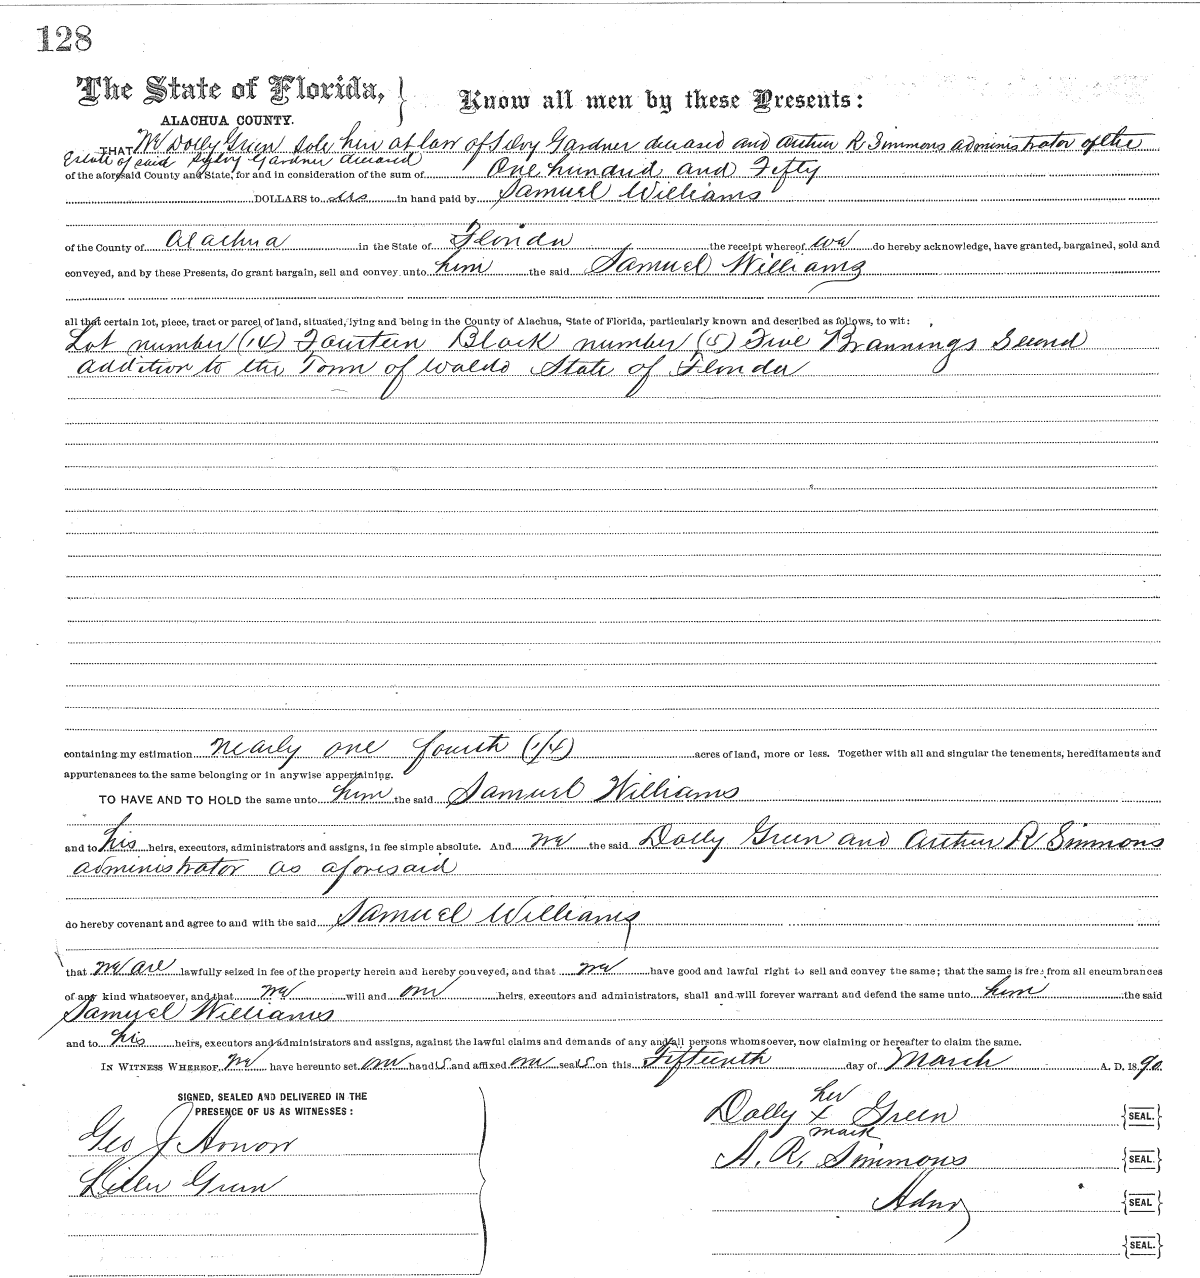 128
The State of Florida, } Know all men by these Presents:
ALACHUA COUNTY.
THAT We Dolly Green sole heir at law of Silvy Gardner deceased and Arthur R Simmons administrator of the
Estate of said Sylvy Gardner deceased
of the aforesaid County and State, for and in consideration of the sum of One hundred and Fifty
DOLLARS to us in hand paid by Samuel Williams
of the County of Alachua in the State of Florida the receipt whereof we do hereby acknowledge, have granted, bargained, sold and
conveyed, and by these Presents, do grant bargain, sell and convey unto him the said Samuel Williams
all that certain lot, piece, tract or parcel of land, situated, lying and being in the County of Alachua, State of Florida, particularly known and described as follows, to wit:
Lot number (14) Fourteen Block number (5) Five Brannings Second
addition to the Town of Waldo State of Florida
containing my estimation nearly one fourth (1/4) acres of land, more or less. Together with all and singular the tenements, hereditaments and
appurtenances to the same belonging or in anywise appertaining.
TO HAVE AND TO HOLD the same unto him the said Samuel Williams
and to his heirs, executors, administrators and assigns, in fee simple absolute. And we the said Dolly Green and Arthur R Simmons
administrator as aforesaid
do hereby covenant and agree to and with the said Samuel Williams
that we are lawfully seized in fee of the property herein and hereby conveyed, and that we have good and lawful right to sell and convey the same; that the same is free from all encumbrances
of any kind whatsoever, and that we will and our heirs, executors and administrators, shall and will forever warrant and defend the same unto him the said
Samuel Williams
and to his heirs, executors and administrators and assigns, against the lawful claims and demands of any and all persons whomsoever, now claiming or hereafter to claim the same.
IN WITNESS WHEREOF we have hereunto set our hands and affixed our seals on this Fifteenth day of March A. D. 1890.
SIGNED, SEALED AND DELIVERED IN THE
PRESENCE OF US AS WITNESSES:
her
Dolly x Green {SEAL.}
mark
Geo J Arnow
A. R. Simmons {SEAL.}
Green
Admr {SEAL}
{SEAL.}